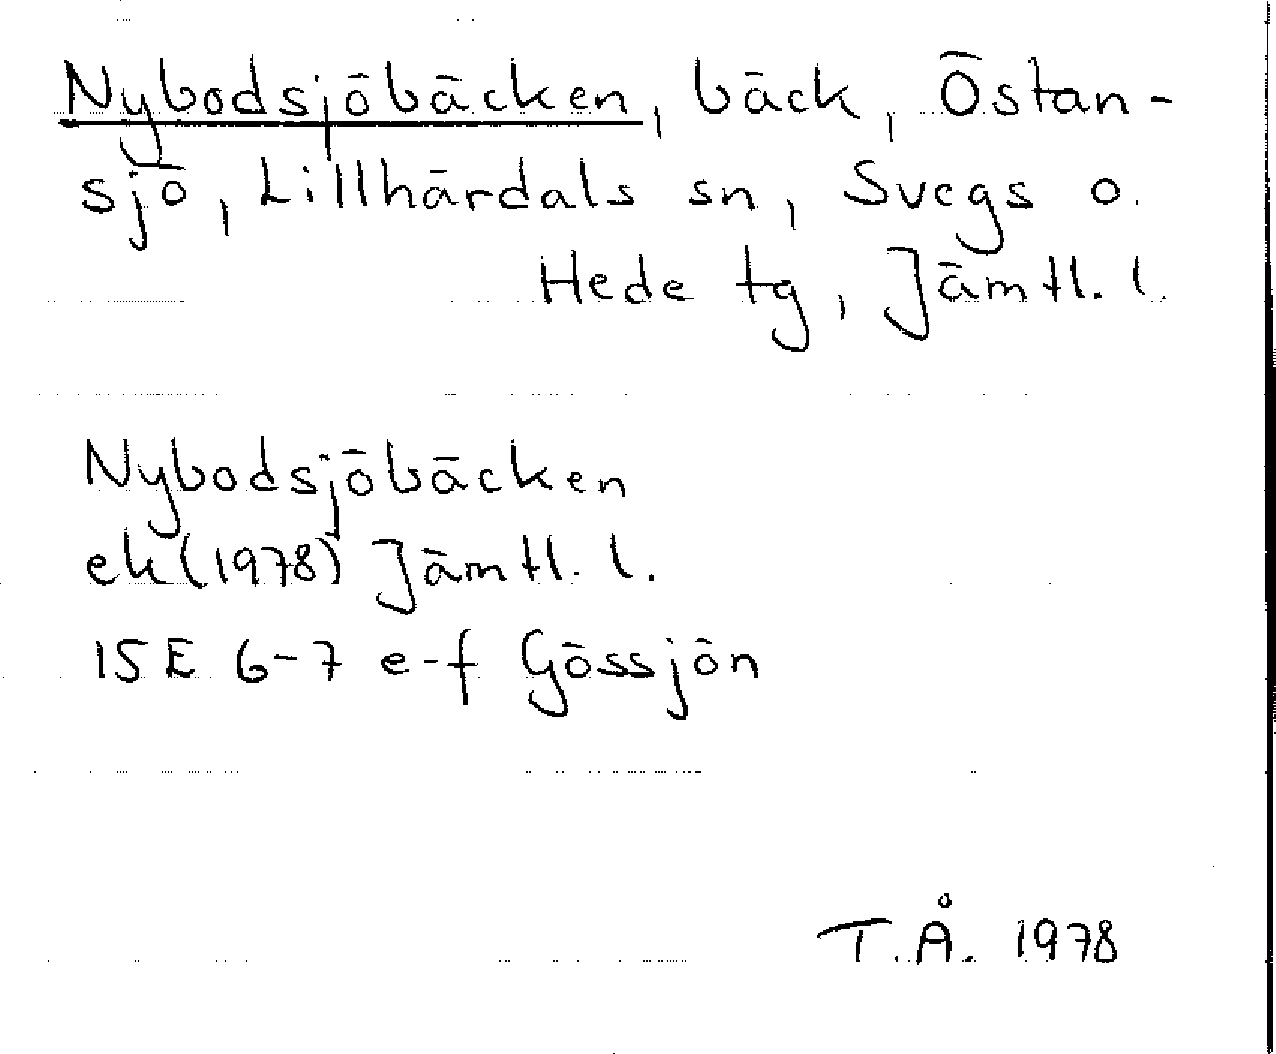 Nybodsjöbäcken, bäck, Östan-
sjö, Lillhärdals sn, Svegs o.
Hede tg, Jämtl. l.
Nybodsjöbäcken
ek (1978) Jämtl. l.
15E 6-7 e-f Gössjön
T.Å. 1978